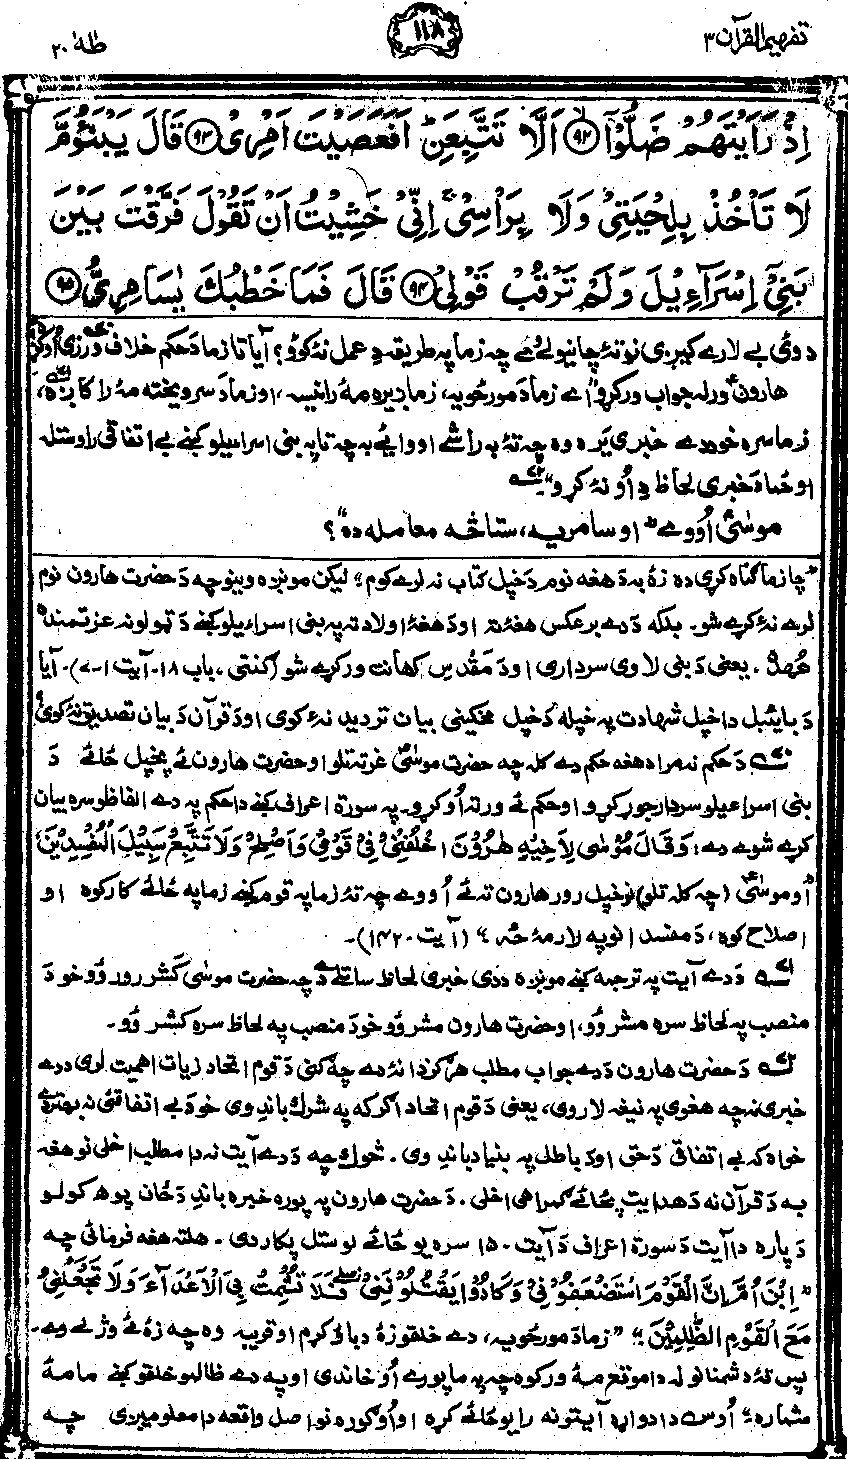 تفهیم القرآن ۳
۱۱۸
طٰهٰ ۲۰
اِذْ رَاَيْتَهُمْ ضَلُّوْۤا ﴿۹۲﴾ اَلَّا تَتَّبِعَنِ ؕ اَفَعَصَيْتَ اَمْرِىْ ﴿۹۳﴾ قَالَ يَبْنَؤُمَّ
لَا تَاْخُذْ بِلِحْيَتِىْ وَلَا بِرَاْسِىْ ۚ اِنِّىْ خَشِيْتُ اَنْ تَقُوْلَ فَرَّقْتَ بَيْنَ
بَنِىْۤ اِسْرَآءِيْلَ وَلَمْ تَرْقُبْ قَوْلِىْ ﴿۹۴﴾ قَالَ فَمَا خَطْبُكَ يٰسَامِرِىُّ ﴿۹۵﴾
دوئ بے لارے کیږی نو تۀ چا نیولے وے چہ زما پہ طریقہ دِ عمل نۀ کوو؟ آیا تا زما دَ حکم خلاف ورزی اوکړه
هارون ورلہ جواب ورکړو "اے زما دَ مور ځویہ، زما ږیره مۀ رانیسہ، او زما دَ سر ویښتہ مۀ را کاږه،
زما سره خو دے خبری یره وه چہ تۀ بہ راشے او وائے بہ چہ تا پہ بنی اسرائیلو کښے بے اتفاقی راوستلہ
او ځما دَ خبری لحاظ دِ اُو نۀ کړو"
موسیٰؑ اُووے "او سامریہ، ستا څہ معاملہ ده"؟
چا زما ګناه کړی ده زۀ بہ دَ هغہ نوم دَ خپل کتاب نہ لرے کوم" لیکن مونږه وینو چہ دَ حضرت هارون نوم
لرے نۀ کړے شو. بلکہ دَ دے برعکس هغۀ تہ او دَ هغۀ اولاد تہ پہ بنی اسرائیلو کښے دَ ټولو نہ عزتمندہ
عُهده، یعنی دَ بنی لاوی سرداری او دَ مقدس کهانت ورکړے شو (ګنتی، باب ۱۸ـ آیت ۱ـ۷)ـ آیا
دَ بائیبل دا خپل شهادت پہ خپلہ دَ خپل مخکینی بیان تردید نۀ کوی او دَ قرآن دَ بیان تصدیق نۀ کوی؟
دَ حکم نہ مراد هغہ حکم دے کلہ چہ حضرت موسیٰؑ غر تہ تلو او حضرت هارون ئے پہ خپل ځائے دَ
بنی اسرائیلو سردار جوړ کړو او حکم ئے ورتہ اُوکړو. پہ سورۃ اعراف کښے دا حکم پہ دے الفاظو سره بیان
کړے شوے دے: وَقَالَ مُوْسٰى لِاَخِيْهِ هٰرُوْنَ اخْلُفْنِىْ فِىْ قَوْمِىْ وَاَصْلِحْ وَلَا تَتَّبِعْ سَبِيْلَ الْمُفْسِدِيْنَ
"او موسیٰؑ (چہ کلہ تلو) نو خپل رور هارون تہ ئے اُووے چہ تۀ زما پہ قوم کښے زما پہ ځائے کار کوه او
اصلاح کوه، دَ مفسدانو پہ لار مۀ ځہ" (آیت ۱۴۲۰)ـ
دَ دے آیت پہ ترجمہ کښے مونږه د دی خبری لحاظ ساتلے دے چہ حضرت موسیٰ کشر رور وُو خو دَ
منصب پہ لحاظ سره مشر وُو، او حضرت هارون مشر وُو خو دَ منصب پہ لحاظ سره کشر وُو.
دَ حضرت هارون دَ دے جواب مطلب هرګز دا نۀ دے چہ ګنی دَ قوم اتحاد زیات اهمیت لری د دے
خبری نہ چہ هغوی پہ نیغہ لار وی، یعنی دَ قوم اتحاد اګر کہ پہ شرک باندِ وی خو دَ بے اتفاقئ نہ بهتر دے
خواه کہ بے اتفاقی دَ حق او دَ باطل پہ بنیاد باندِ وی. څوک چہ دَ دے آیت نہ دا مطلب اخلی نو هغہ
بہ دَ قرآن نہ دَ هدایت پہ ځائے ګمراهی اخلی. دَ حضرت هارون پہ پوره خبره باندِ دَ ځان پوهہ کولو
دَ پاره دا آیت دَ سورۃ اعراف دَ آیت ۱۵۰ سره یو ځائے لوستل پکار دی. هلتہ هغہ فرمائی چہ
"اِبْنَ اُمَّ اِنَّ الْقَوْمَ اسْتَضْعَفُوْنِىْ وَكَادُوْا يَقْتُلُوْنَنِىْ فَلَا تُشْمِتْ بِىَ الْاَعْدَآءَ وَلَا تَجْعَلْنِىْ
مَعَ الْقَوْمِ الظّٰلِمِيْنَ" "زما دَ مور ځویہ، دے خلقو زۀ دباؤ کړم او قریب وه چہ زۀ ئے وژلے وے.
پس تۀ دُشمنانو لہ دا موقع مۀ ورکوه چہ پہ ما پورے اُو خاندی او پہ دے ظالمو خلقو کښے ما مۀ
شماره" اُوس دا دواړه آیتونہ را یو ځائے کړه او اُوګوره نو اصل واقعہ دا معلومیږی چہ